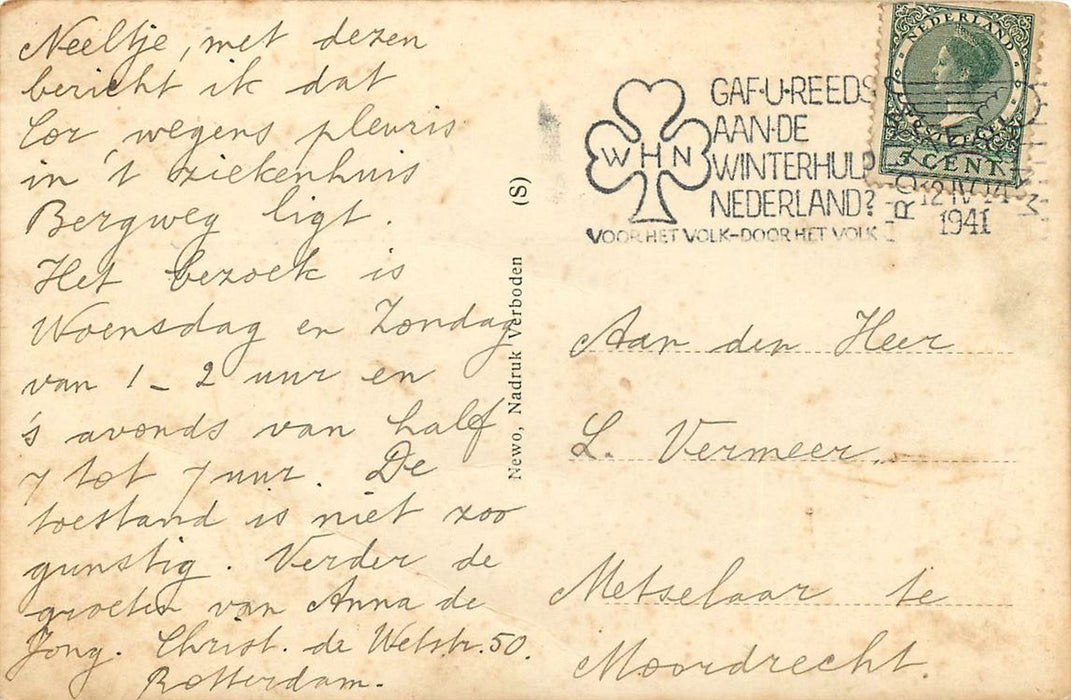 Neeltje, met dezen
bericht ik dat
Cor, wegens pleuris
in 't ziekenhuis
Bergweg ligt.
Het bezoek is
Woensdag en Zondag
van 1 - 2 uur en
's avonds van half
7 tot 7 uur. De
toestand is niet zoo
gunstig. Verder de
groeten van Anna de
Jong. Christ. de Wetstr. 50.
Rotterdam.
Newo, Nadruk Verboden (S)
WHN
GAF·U·REEDS
AAN·DE
WINTERHULP
NEDERLAND?
VOOR HET VOLK-DOOR HET VOLK
NEDERLAND
5 CENT
12 IV 14
1941
Aan den Heer
L. Vermeer.
Metselaar te
Moordrecht.